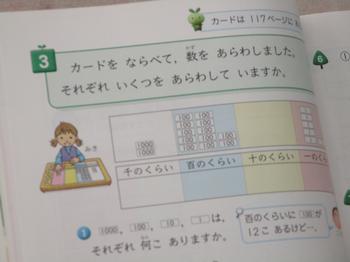 カードは 117ページに
3
カードを ならべて，数を あらわしました。
それぞれ いくつを あらわして いますか。
6
みき
1000
1000
100 100
100 100
100 100
100 100 100
100 100 100
千のくらい
百のくらい
十のくらい
一のくらい
1 1000，100，10，1は，
それぞれ 何こ ありますか。
百のくらいに 100が
12こ あるけピー。